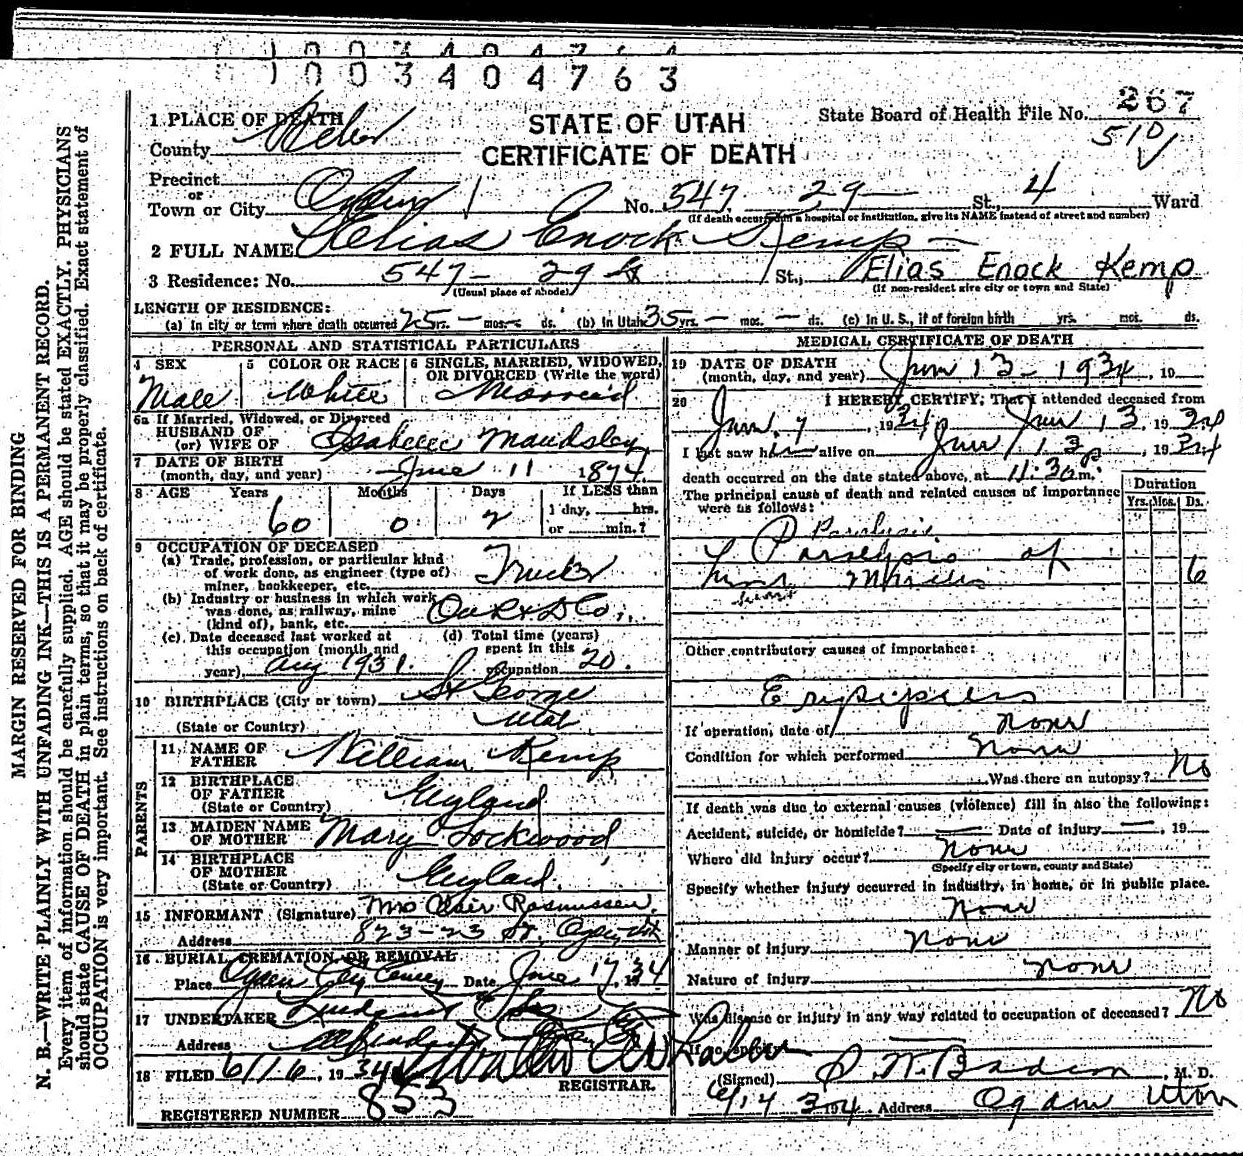 1003404763
MARGIN RESERVED FOR BINDING
N. B.—WRITE PLAINLY WITH UNFADING INK—THIS IS A PERMANENT RECORD.
Every item of information should be carefully supplied. AGE should be stated EXACTLY. PHYSICIANS
should state CAUSE OF DEATH in plain terms, so that it may be properly classified. Exact statement of
OCCUPATION is very important. See instructions on back of certificate.
1 PLACE OF DEATH
County Weber
STATE OF UTAH
CERTIFICATE OF DEATH
State Board of Health File No. 267
510
Precinct
or
Town or City Ogden No. 547 29 St., 4 Ward
(If death occurred in a hospital or institution, give its NAME instead of street and number)
2 FULL NAME Elias Enock Kemp
3 Residence: No. 547 - 29 St., Elias Enock Kemp
(Usual place of abode) (If non-resident give city or town and State)
LENGTH OF RESIDENCE:
(a) In city or town where death occurred 25 yrs. — mos. — ds. (b) In Utah 35 yrs. — mos. — ds. (c) In U. S., if of foreign birth yrs. mos. ds.
PERSONAL AND STATISTICAL PARTICULARS
4 SEX Male
5 COLOR OR RACE White
6 SINGLE, MARRIED, WIDOWED,
OR DIVORCED (Write the word)
Married
6a If Married, Widowed, or Divorced
HUSBAND OF
(or) WIFE OF Maudsley
7 DATE OF BIRTH
(month, day, and year) June 11 1874
8 AGE Years Months Days If LESS than
60 0 2 1 day, hrs.
or min.?
9 OCCUPATION OF DECEASED
(a) Trade, profession, or particular kind
of work done, as engineer (type of)
miner, bookkeeper, etc. Trucker
(b) Industry or business in which work
was done, as railway, mine
(kind of), bank, etc.
(c) Date deceased last worked at
this occupation (month and
year) Aug 1931.
(d) Total time (years)
spent in this
occupation 20.
10 BIRTHPLACE (City or town) St George
(State or Country) Utah
PARENTS
11 NAME OF
FATHER William Kemp
12 BIRTHPLACE
OF FATHER
(State or Country) England
13 MAIDEN NAME
OF MOTHER Mary Lockwood
14 BIRTHPLACE
OF MOTHER
(State or Country) England
15 INFORMANT (Signature) Mrs Clair Rasmussen
Address 823-23 St. Ogden Utah
16 BURIAL, CREMATION, OR REMOVAL
Place Ogden City Date June 17, 1934
17 UNDERTAKER
Address
18 FILED 6/16, 1934
REGISTRAR.
REGISTERED NUMBER 853
MEDICAL CERTIFICATE OF DEATH
19 DATE OF DEATH
(month, day, and year) Jun 13 - 1934, 19
20 I HEREBY CERTIFY; That I attended deceased from
Jun. 7, 1934 Jun 13, 1934
I last saw h alive on Jun 13, 1934
death occurred on the date stated above, at 11:30 m.
The principal cause of death and related causes of importance
were as follows:
Duration
Yrs. Mos. Ds.
Paralysis
Paralysis of
6
heart
Other contributory causes of importance:
If operation, date of none
Condition for which performed None
Was there an autopsy? No
If death was due to external causes (violence) fill in also the following:
Accident, suicide, or homicide? — Date of injury —, 19
Where did injury occur? None
(Specify city or town, county and State)
Specify whether injury occurred in industry, in home, or in public place.
None
Manner of injury None
Nature of injury none
Was disease or injury in any way related to occupation of deceased? No
(Signed) M. D.
6/14 1934 Address Ogden Utah